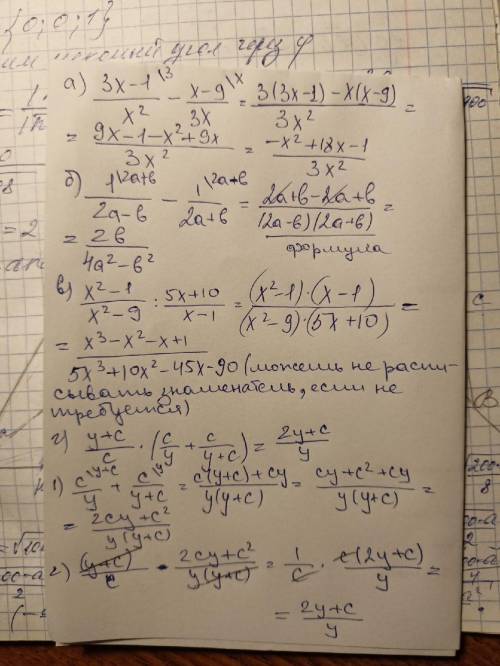 {0; 0; 1}
угол через φ
а) \frac{3x-1^{\3}}{x^2} - \frac{x-9^{\x}}{3x} = \frac{3(3x-1)-x(x-9)}{3x^2} =
= \frac{9x-1-x^2+9x}{3x^2} = \frac{-x^2+18x-1}{3x^2}
б) \frac{1^{\2a+b}}{2a-b} - \frac{1^{\2a+b}}{2a+b} = \frac{2a+b-2a+b}{(2a-b)(2a+b)} =
формула
= \frac{2b}{4a^2-b^2}
в) \frac{x^2-1}{x^2-9} : \frac{5x+10}{x-1} = \frac{(x^2-1)·(x-1)}{(x^2-9)·(5x+10)} =
= \frac{x^3-x^2-x+1}{5x^3+10x^2-45x-90} (можешь не распи-
сывать знаменатель, если не
требуется)
г) \frac{y+c}{c} · (\frac{c}{y} + \frac{c}{y+c}) = \frac{2y+c}{y}
1) \frac{c^{\y+c}}{y} + \frac{c^{\y}}{y+c} = \frac{c(y+c)+cy}{y(y+c)} = \frac{cy+c^2+cy}{y(y+c)} =
= \frac{2cy+c^2}{y(y+c)}
2) \frac{(y+c)}{c} · \frac{2cy+c^2}{y(y+c)} = \frac{1}{c} · \frac{c(2y+c)}{y} =
= \frac{2y+c}{y}